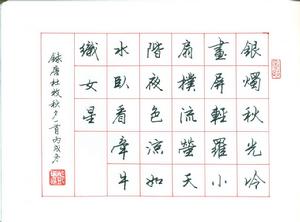 銀燭秋光冷
畫屏輕羅小
扇撲流螢天
階夜色涼如
水臥看牽牛
織女星
錄唐杜牧秋夕一首丙戌冬